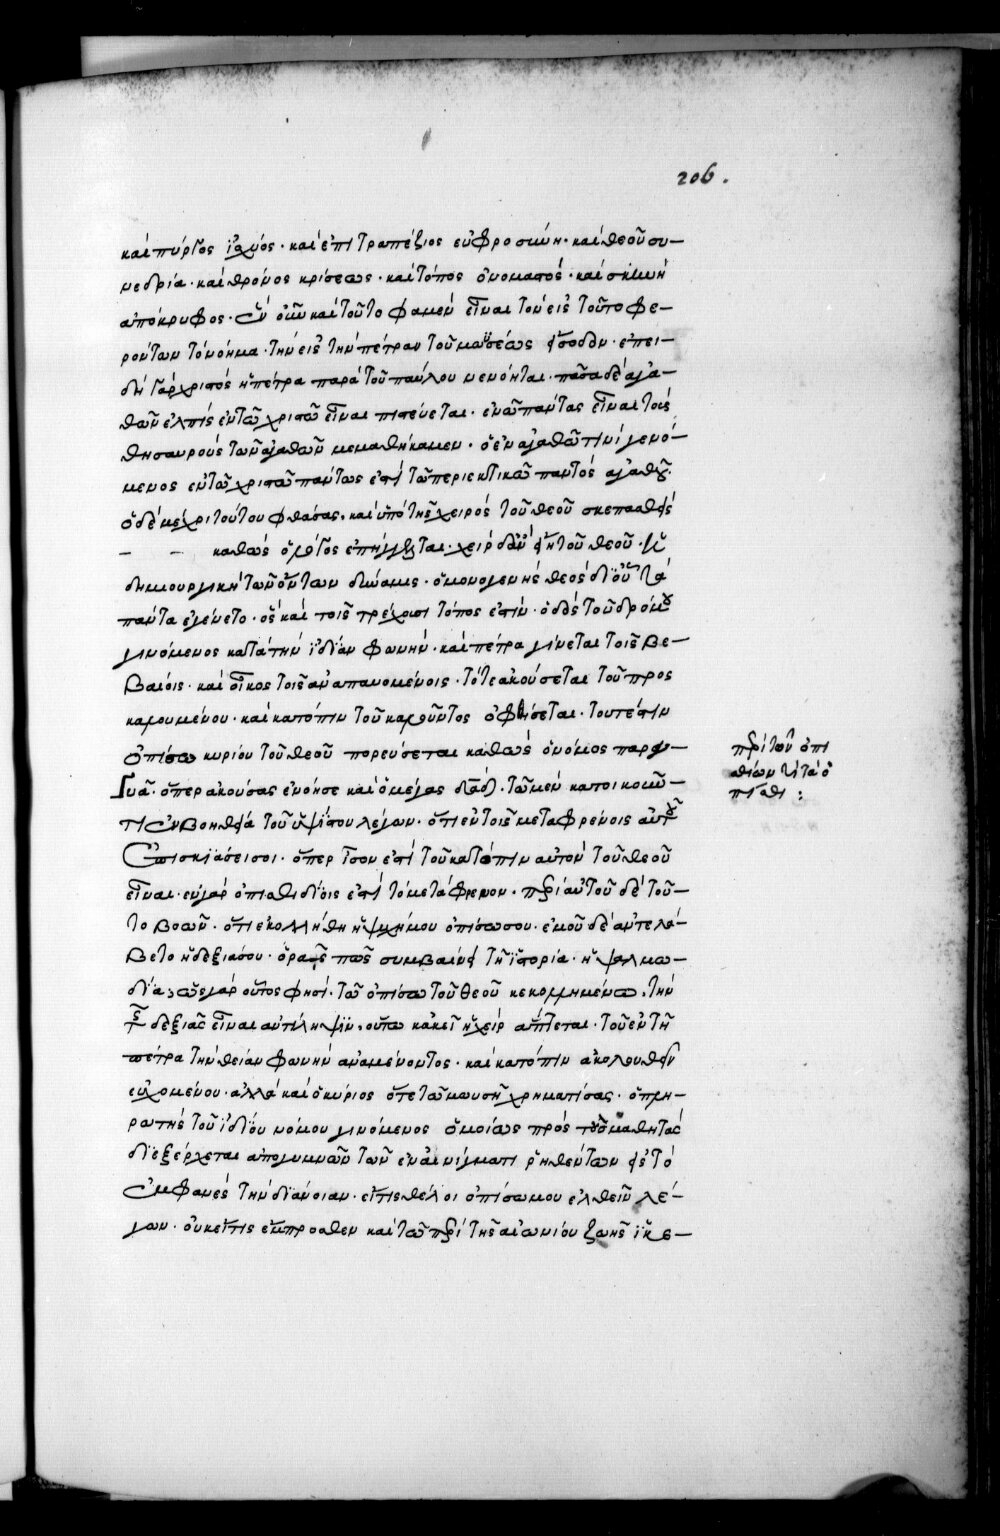 206.
καὶ πύργος ἰσχύος· καὶ ἐπιτραπέζιος εὐφροσύνη· καὶ θεοῦ συ-
νεδρία· καὶ θρόνος κρίσεως· καὶ τόπος ὀνομαστός· καὶ σκηνὴ
ἀπόκρυφος· ἓν οὖν καὶ τοῦτο φαμὲν εἶναι τῶν εἰς τοῦτο φε-
ρόντων τὸ νόημα· τὴν εἰς τὴν πέτραν τοῦ μωϋσέως εἴσοδον· ἐπει-
δὴ γὰρ χριστὸς ἡ πέτρα παρὰ τοῦ παύλου νενόηται· πᾶσα δὲ ἀγα-
θῶν ἐλπὶς ἐν τῶ χριστῶ εἶναι πιστεύεται· ἐν ὧ πάντας εἶναι τοὺς
θησαυροὺς τῶν ἀγαθῶν μεμαθήκαμεν· ὁ ἐν ἀγαθῶ τινὶ γενό-
μενος ἐν τῶ χριστῶ πάντως ἐστὶ τῶ περιεκτικῶ παντὸς ἀγαθοῦ·
ὁ δὲ μέχρι τούτου φθάσας· καὶ ὑπὸ τῆς χειρὸς τοῦ θεοῦ σκεπασθεὶς
- - καθὼς ὁ λόγος ἐπήγγελται· χεὶρ δ' ἂν εἴη τοῦ θεοῦ· ἡ
δημιουργικὴ τῶν ὄντων δύναμις· ὁ μονογενὴς θεὸς δι' οὗ τὰ
πάντα ἐγένετο· ὃς καὶ τοῖς τρέχουσι τόπος ἐστὶν· ὁδὸς τοῦ δρόμου
γινόμενος κατὰ τὴν ἰδίαν φωνήν· καὶ πέτρα γίνεται τοῖς βε-
βαίοις· καὶ οἶκος τοῖς ἀναπαυομένοις· τότε ἀκούσεται τοῦ προς
καλουμένου· καὶ κατόπιν τοῦ καλοῦντος ὀφθήσεται· τουτέστιν
ὀπίσω κυρίου τοῦ θεοῦ πορεύσεται καθὼς ὁ νόμος παρεγ-
γυᾶ· ὅπερ ἀκούσας ἐνόησε καὶ ὁ μέγας δαδ· τῶ μὲν κατοικοῦν-
τι ἐν βοηθεία τοῦ ὑψίστου λέγων· ὅτι ἐν τοῖς μεταφρένοις αὐτοῦ
ἐπισκιάσει σοι· ὅπερ ἴσον ἐστὶ τοῦ κατόπιν αὐτὸν τοῦ θεοῦ
εἶναι· ἐν γὰρ ὀπισθιδίοις ἐστὶ τὸ μετάφρενον· περὶ αὐτοῦ δὲ τοῦ-
το βοῶν· ὅτι ἐκολλήθη ἡ ψυχή μου ὀπίσω σου· ἐμοῦ δὲ ἀντελά-
βετο ἡ δεξιά σου· ὁρᾶς πῶς συμβαίνει τῆ ἱστορία· ἡ ψαλμω-
δία· ὡς γὰρ οὗτος φησὶ· τῶ ὀπίσω τοῦ θεοῦ κεκολλημένω· τὴν
τῆς δεξιᾶς εἶναι ἀντίληψιν· οὕτω κἀκεῖ ἡ χεὶρ ἅπτεται· τοῦ ἐν τῆ
πέτρα τὴν θείαν φωνὴν ἀναμένοντος· καὶ κατόπιν ἀκολουθεῖν
εὐχομένου· ἀλλὰ καὶ ὁ κύριος ὅτε τῶ μωυσῆ χρηματίσας· ὁ πλη-
ρωτὴς τοῦ ἰδίου νόμου γινόμενος ὁμοίως πρὸς τοὺς μαθητὰς
διεξέρχεται ἀπογυμνῶν τῶν ἐν αἰνίγματι ῥηθέντων εἰς τὸ
ἐμφανὲς τὴν διάνοιαν· εἴ τις θέλοι ὀπίσω μου ἐλθεῖν λέ-
γων· οὐκ εἴ τις ἔμπροσθεν καὶ τῶ περὶ τῆς αἰωνίου ζωῆς ἱκε-
περὶ τῶν ὀπι
πισθι :